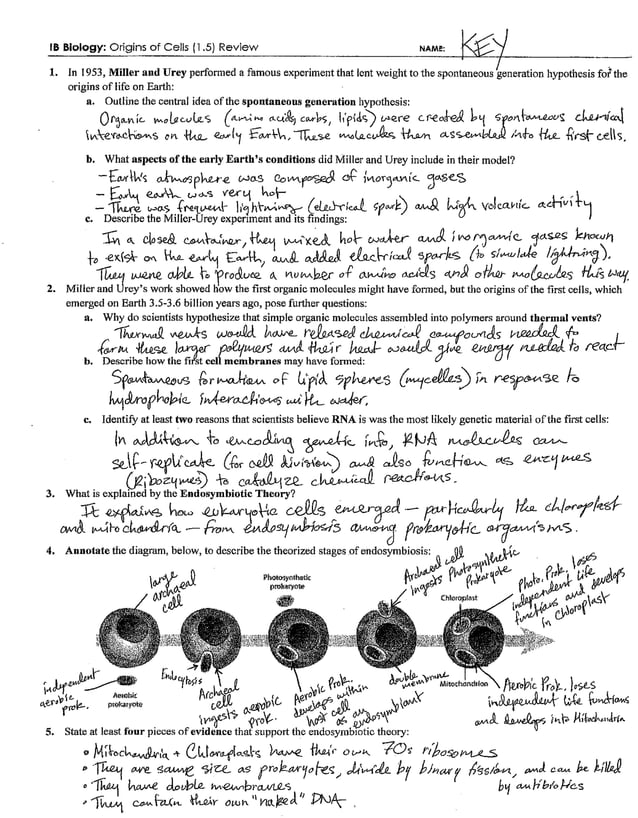 IB Biology: Origins of Cells (1.5) Review NAME: KEY
1. In 1953, Miller and Urey performed a famous experiment that lent weight to the spontaneous generation hypothesis for the
origins of life on Earth:
a. Outline the central idea of the spontaneous generation hypothesis:
Organic molecules (amino acids, carbs, lipids) were created by spontaneous chemical
interactions on the early Earth. These molecules then assembled into the first cells.
b. What aspects of the early Earth's conditions did Miller and Urey include in their model?
- Earth's atmosphere was composed of inorganic gases
- Early earth was very hot
- There was frequent lightning (electrical spark) and high volcanic activity
c. Describe the Miller-Urey experiment and its findings:
In a closed container, they mixed hot water and inorganic gases known
to exist on the early Earth, and added electrical sparks (to simulate lightning).
They were able to produce a number of amino acids and other molecules this way.
2. Miller and Urey's work showed how the first organic molecules might have formed, but the origins of the first cells, which
emerged on Earth 3.5-3.6 billion years ago, pose further questions:
a. Why do scientists hypothesize that simple organic molecules assembled into polymers around thermal vents?
Thermal vents would have released chemical compounds needed to
form these larger polymers and their heat would give energy needed to react
b. Describe how the first cell membranes may have formed:
Spontaneous formation of lipid spheres (mycelles) in response to
hydrophobic interactions with water.
c. Identify at least two reasons that scientists believe RNA is was the most likely genetic material of the first cells:
In addition to encoding genetic info, RNA molecules can
self-replicate (for cell division) and also function as enzymes
(Ribozymes) to catalyze chemical reactions.
3. What is explained by the Endosymbiotic Theory?
It explains how eukaryotic cells emerged – particularly the chloroplast
and mitochondria – from endosymbiosis among prokaryotic organisms.
4. Annotate the diagram, below, to describe the theorized stages of endosymbiosis:
large
archaeal
cell
Photosynthetic
prokaryote
Archaeal cell
ingests Photosynthetic
Prokaryote
Chloroplast
Photo. Prok. loses
independent life
functions and develops
in Chloroplast
independent
aerobic
prok.
Aerobic
prokaryote
Endocytosis
Archaeal
cell
ingests aerobic
prok.
Aerobic Prok.
develops within
host cell
as an
endosymbiant
double
membrane
Mitochondrion
Aerobic Prok. loses
independent life functions
and develops into Mitochondria
5. State at least four pieces of evidence that support the endosymbiotic theory:
• Mitochondria + Chloroplasts have their own 70s ribosomes
• They are same size as prokaryotes, divide by binary fission, and can be killed
by antibiotics
• They have double membranes
• They contain their own "naked" DNA.